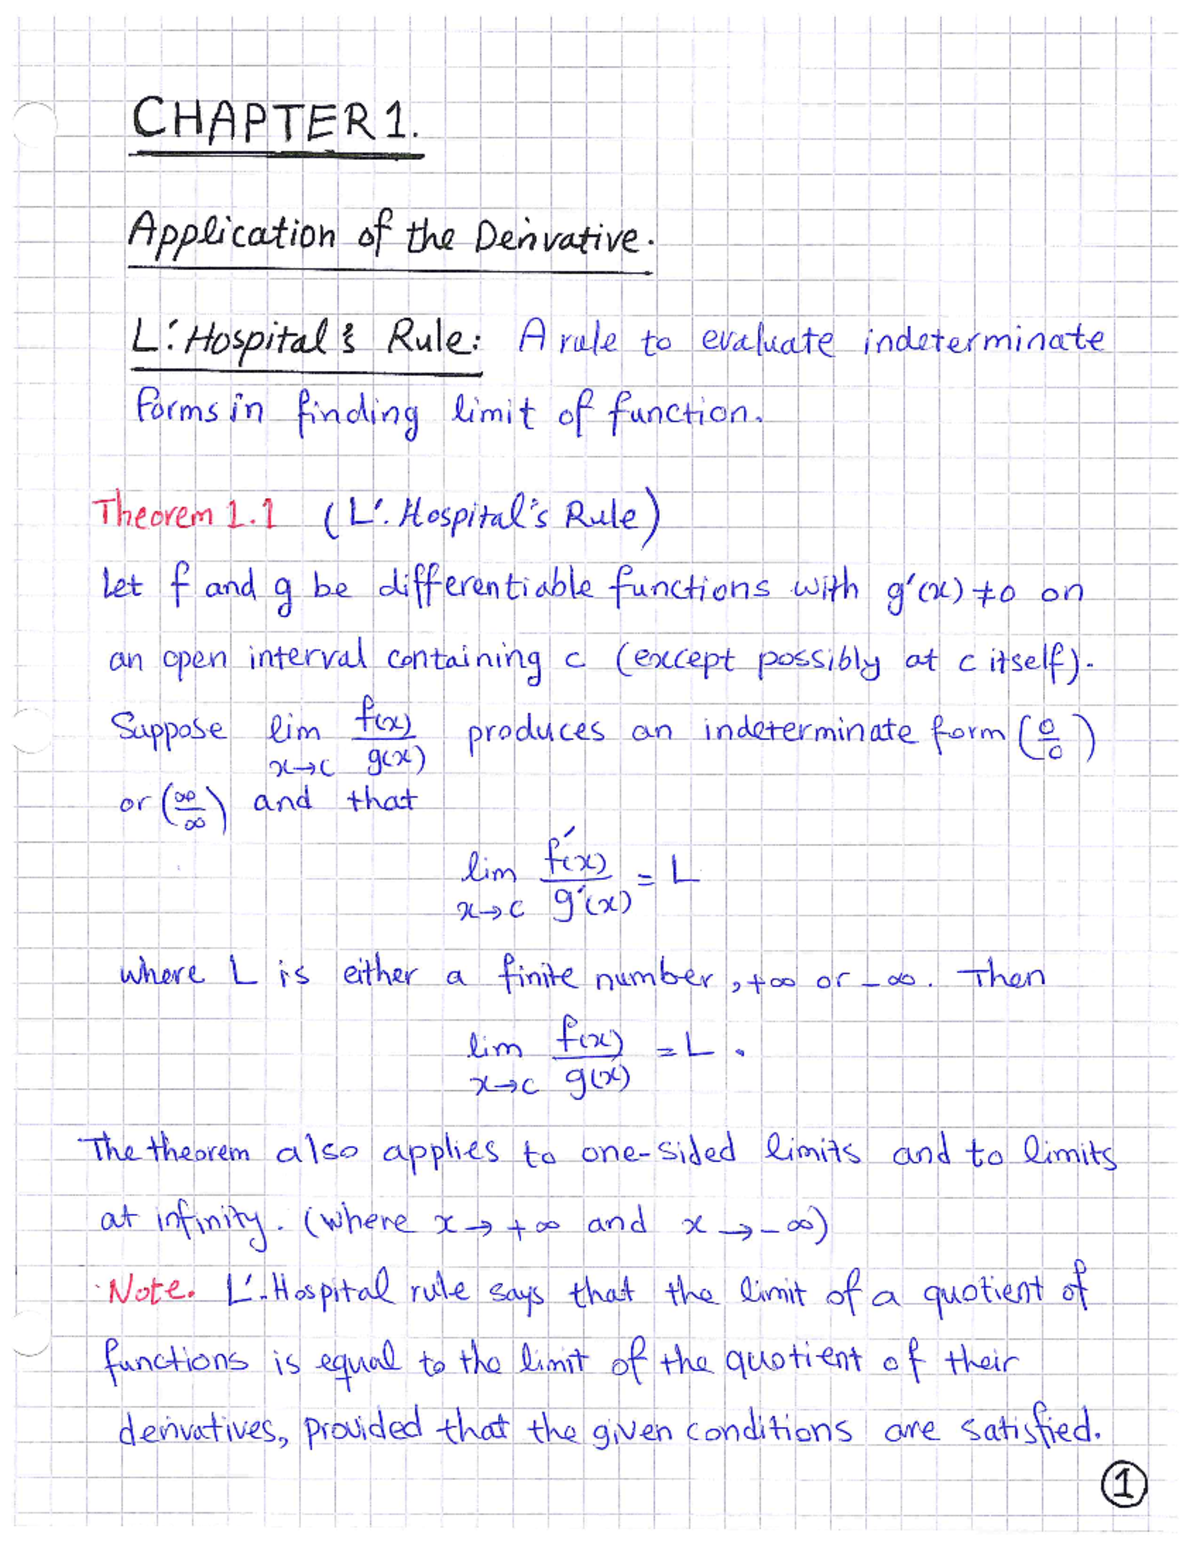 CHAPTER 1.
Application of the Derivative.
L'Hospital's Rule: A rule to evaluate indeterminate
forms in finding limit of function.
Theorem 1.1 (L'Hospital's Rule)
Let f and g be differentiable functions with g'(x) ≠ 0 on
an open interval containing c (except possibly at c itself).
Suppose lim x→c f(x)/g(x) produces an indeterminate form (0/0)
or (∞/∞) and that
lim x→c f'(x)/g'(x) = L
where L is either a finite number, +∞ or -∞. Then
lim x→c f(x)/g(x) = L.
The theorem also applies to one-sided limits and to limits
at infinity. (where x → +∞ and x → -∞)
Note. L'Hospital rule says that the limit of a quotient of
functions is equal to the limit of the quotient of their
derivatives, provided that the given conditions are satisfied.
1